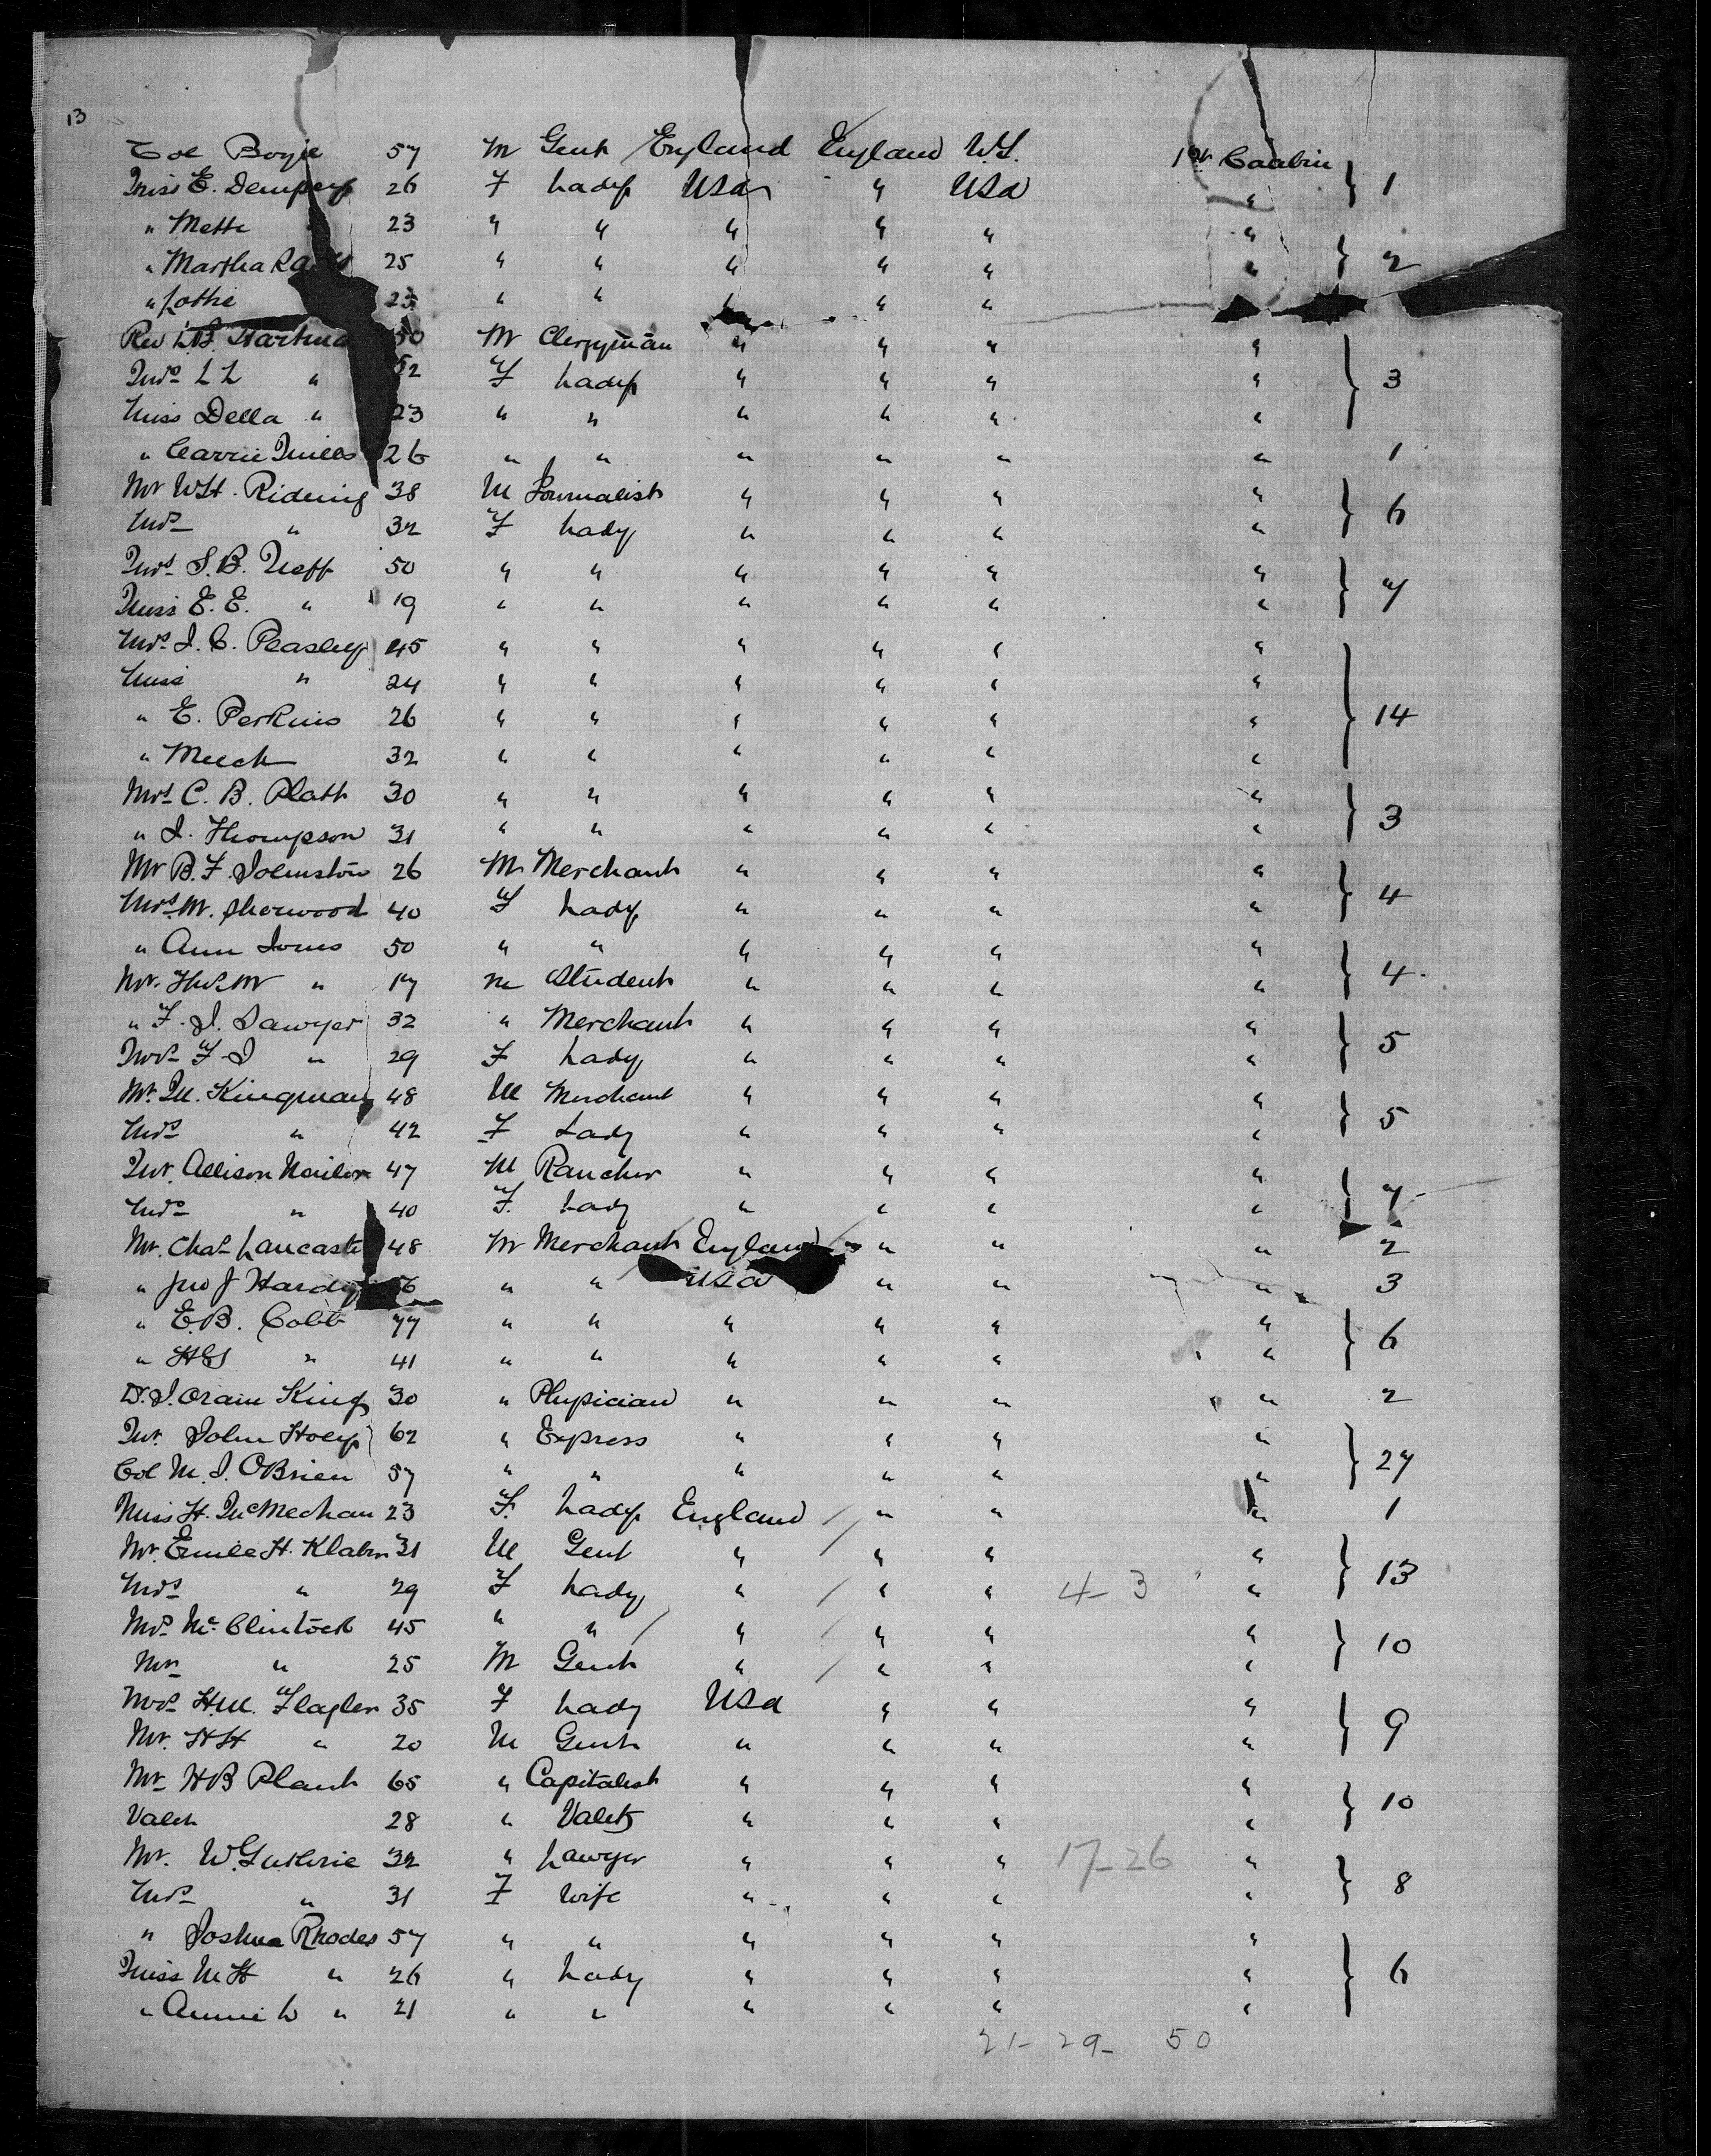 13
Col Boyle 57 M Gent England England U.S. 1st Caabin
Miss E. Dempsey 26 F Lady USA " USA " } 1
" Mette 23 " " " " " "
" Martha 25 " " " " " " } 2
" Lottie 23 " " " " "
Rev L.L. Hartma 50 M Clergyman " " " "
Mrs L L " 52 F Lady " " " " } 3
Miss Della " 23 " " " " " "
" Carrie Mills 26 " " " " " " 1
Mr W.H. Rideing 38 M Journalist " " " " } 6
Mrs " 32 F Lady " " " "
Mrs S.B. Neff 50 " " " " " " } 7
Miss E.E. " 19 " " " " " "
Mrs J.C. Peasley 45 " " " " " "
Miss " 24 " " " " " "
" E. Perkins 26 " " " " " " } 14
" Meech 32 " " " " " "
Mrs C.B. Platt 30 " " " " " " } 3
" J. Thompson 31 " " " " " "
Mr B.F. Johnston 26 M Merchant " " " " } 4
Mrs M. Sherwood 40 F Lady " " " "
" Ann Jones 50 " " " " " " } 4
Mr. " 17 M Student " " " "
" F.J. Sawyer 32 " Merchant " " " " } 5
Mrs F J " 29 F Lady " " " "
Mr. M. Kingman 48 M Merchant " " " " } 5
Mrs " 42 F Lady " " " "
Mr. Allison Nailor 47 M Rancher " " " " } 7
Mrs " 40 F. Lady " " " "
Mr. Chas Lancaste 48 M Merchant England " " " 2
" Jno J Hardy 6 " " USA " " " 3
" E.B. Cobb 77 " " " " " " } 6
" " 41 " " " " " "
Dr. J. Oram King 30 " Physician " " " " 2
Mr. John Hoey 62 " Express " " " " } 27
Col M.J. OBrien 57 " " " " " "
Miss H. McMechan 23 F. Lady England " " " 1
Mr. Emile H. Klaber 31 M Gent " " " " } 13
Mrs " 29 F Lady " " " 4-3 "
Mrs McClintock 45 " " " " " " } 10
Mr " 25 M Gent " " " "
Mrs H.M. Flagler 35 F Lady USA " " " } 9
Mr. HH " 20 M Gent " " " "
Mr HB Plant 65 " Capitalist " " " " } 10
Valet 28 " Valet " " " "
Mr. W. Guthrie 32 " Lawyer " " " 17-26 " } 8
Mrs " 31 F Wife " " " "
" Joshua Rhodes 57 " " " " " "
Miss M H " 26 " Lady " " " " } 6
" Annie L " 21 " " " " " "
21- 29- 50